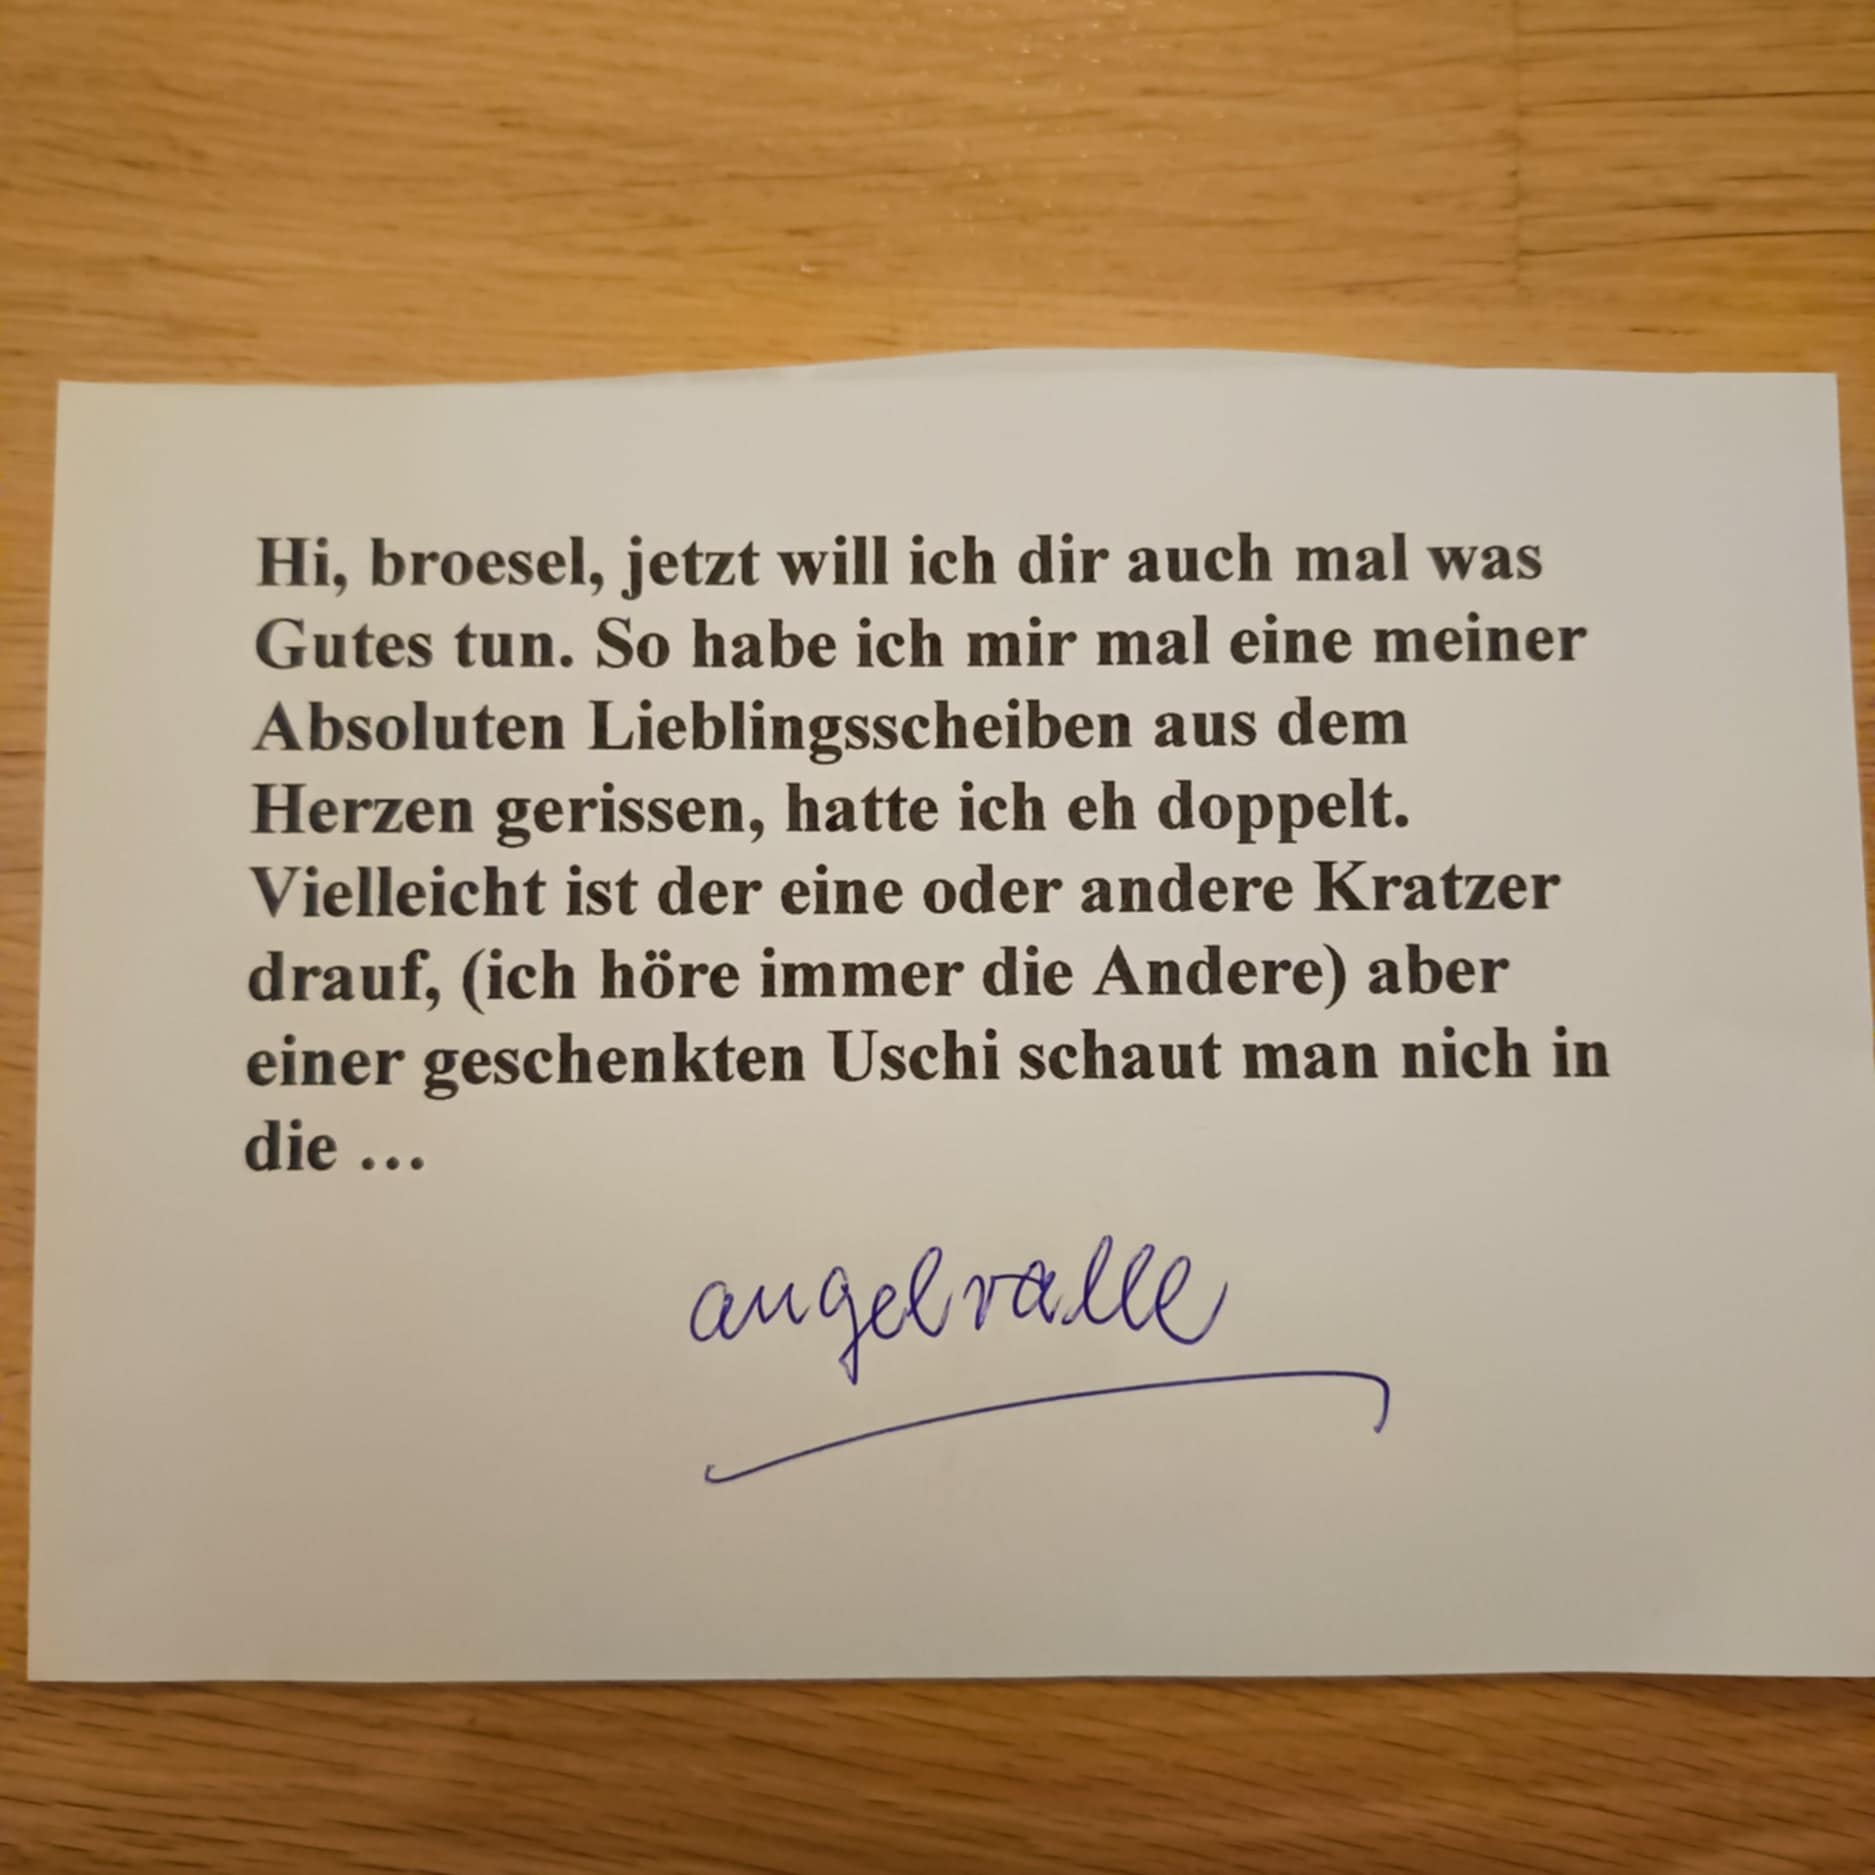 Hi, broesel, jetzt will ich dir auch mal was
Gutes tun. So habe ich mir mal eine meiner
Absoluten Lieblingsscheiben aus dem
Herzen gerissen, hatte ich eh doppelt.
Vielleicht ist der eine oder andere Kratzer
drauf, (ich höre immer die Andere) aber
einer geschenkten Uschi schaut man nich in
die ...
angelralle